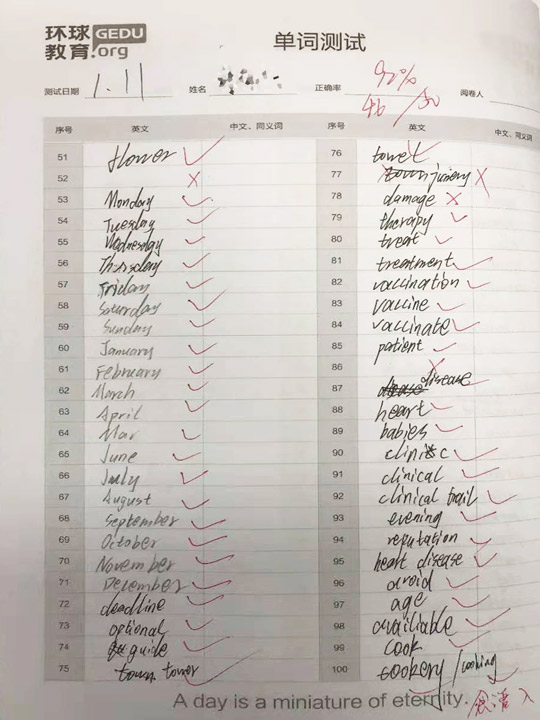 环球 GEDU
教育.org
单词测试
测试日期 1.11 姓名 正确率 92% 46/50 阅卷人
序号 英文 中文、同义词 序号 英文 中文、同义词
51 flower
52
53 Monday
54 Tuesday
55 Wednesday
56 Thursday
57 Friday
58 Saturday
59 Sunday
60 January
61 February
62 March
63 April
64 May
65 June
66 July
67 August
68 September
69 October
70 November
71 December
72 deadline
73 optional
74 guide
75 town tower
76 towel
77
78 damage
79 therapy
80 treat
81 treatment
82 vaccination
83 vaccine
84 vaccinate
85 patient
86
87 disease
88 heart
89 babies
90 clinic
91 clinical
92 clinical trail
93 evening
94 reputation
95 heart disease
96 avoid
97 age
98 availiable
99 cook
100 cookery / cooking
A day is a miniature of eternity.